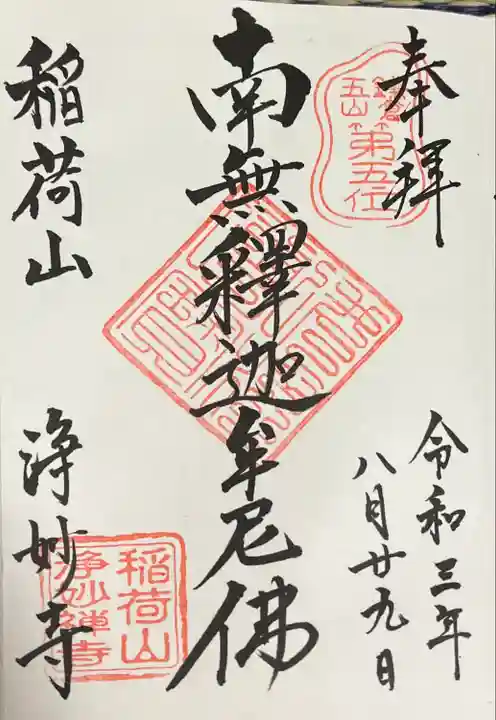 奉拜
鎌倉
五山
第五位
令和三年
八月廿九日
南無釋迦牟尼佛
稲荷山
浄妙寺
稲荷山
浄妙禅寺